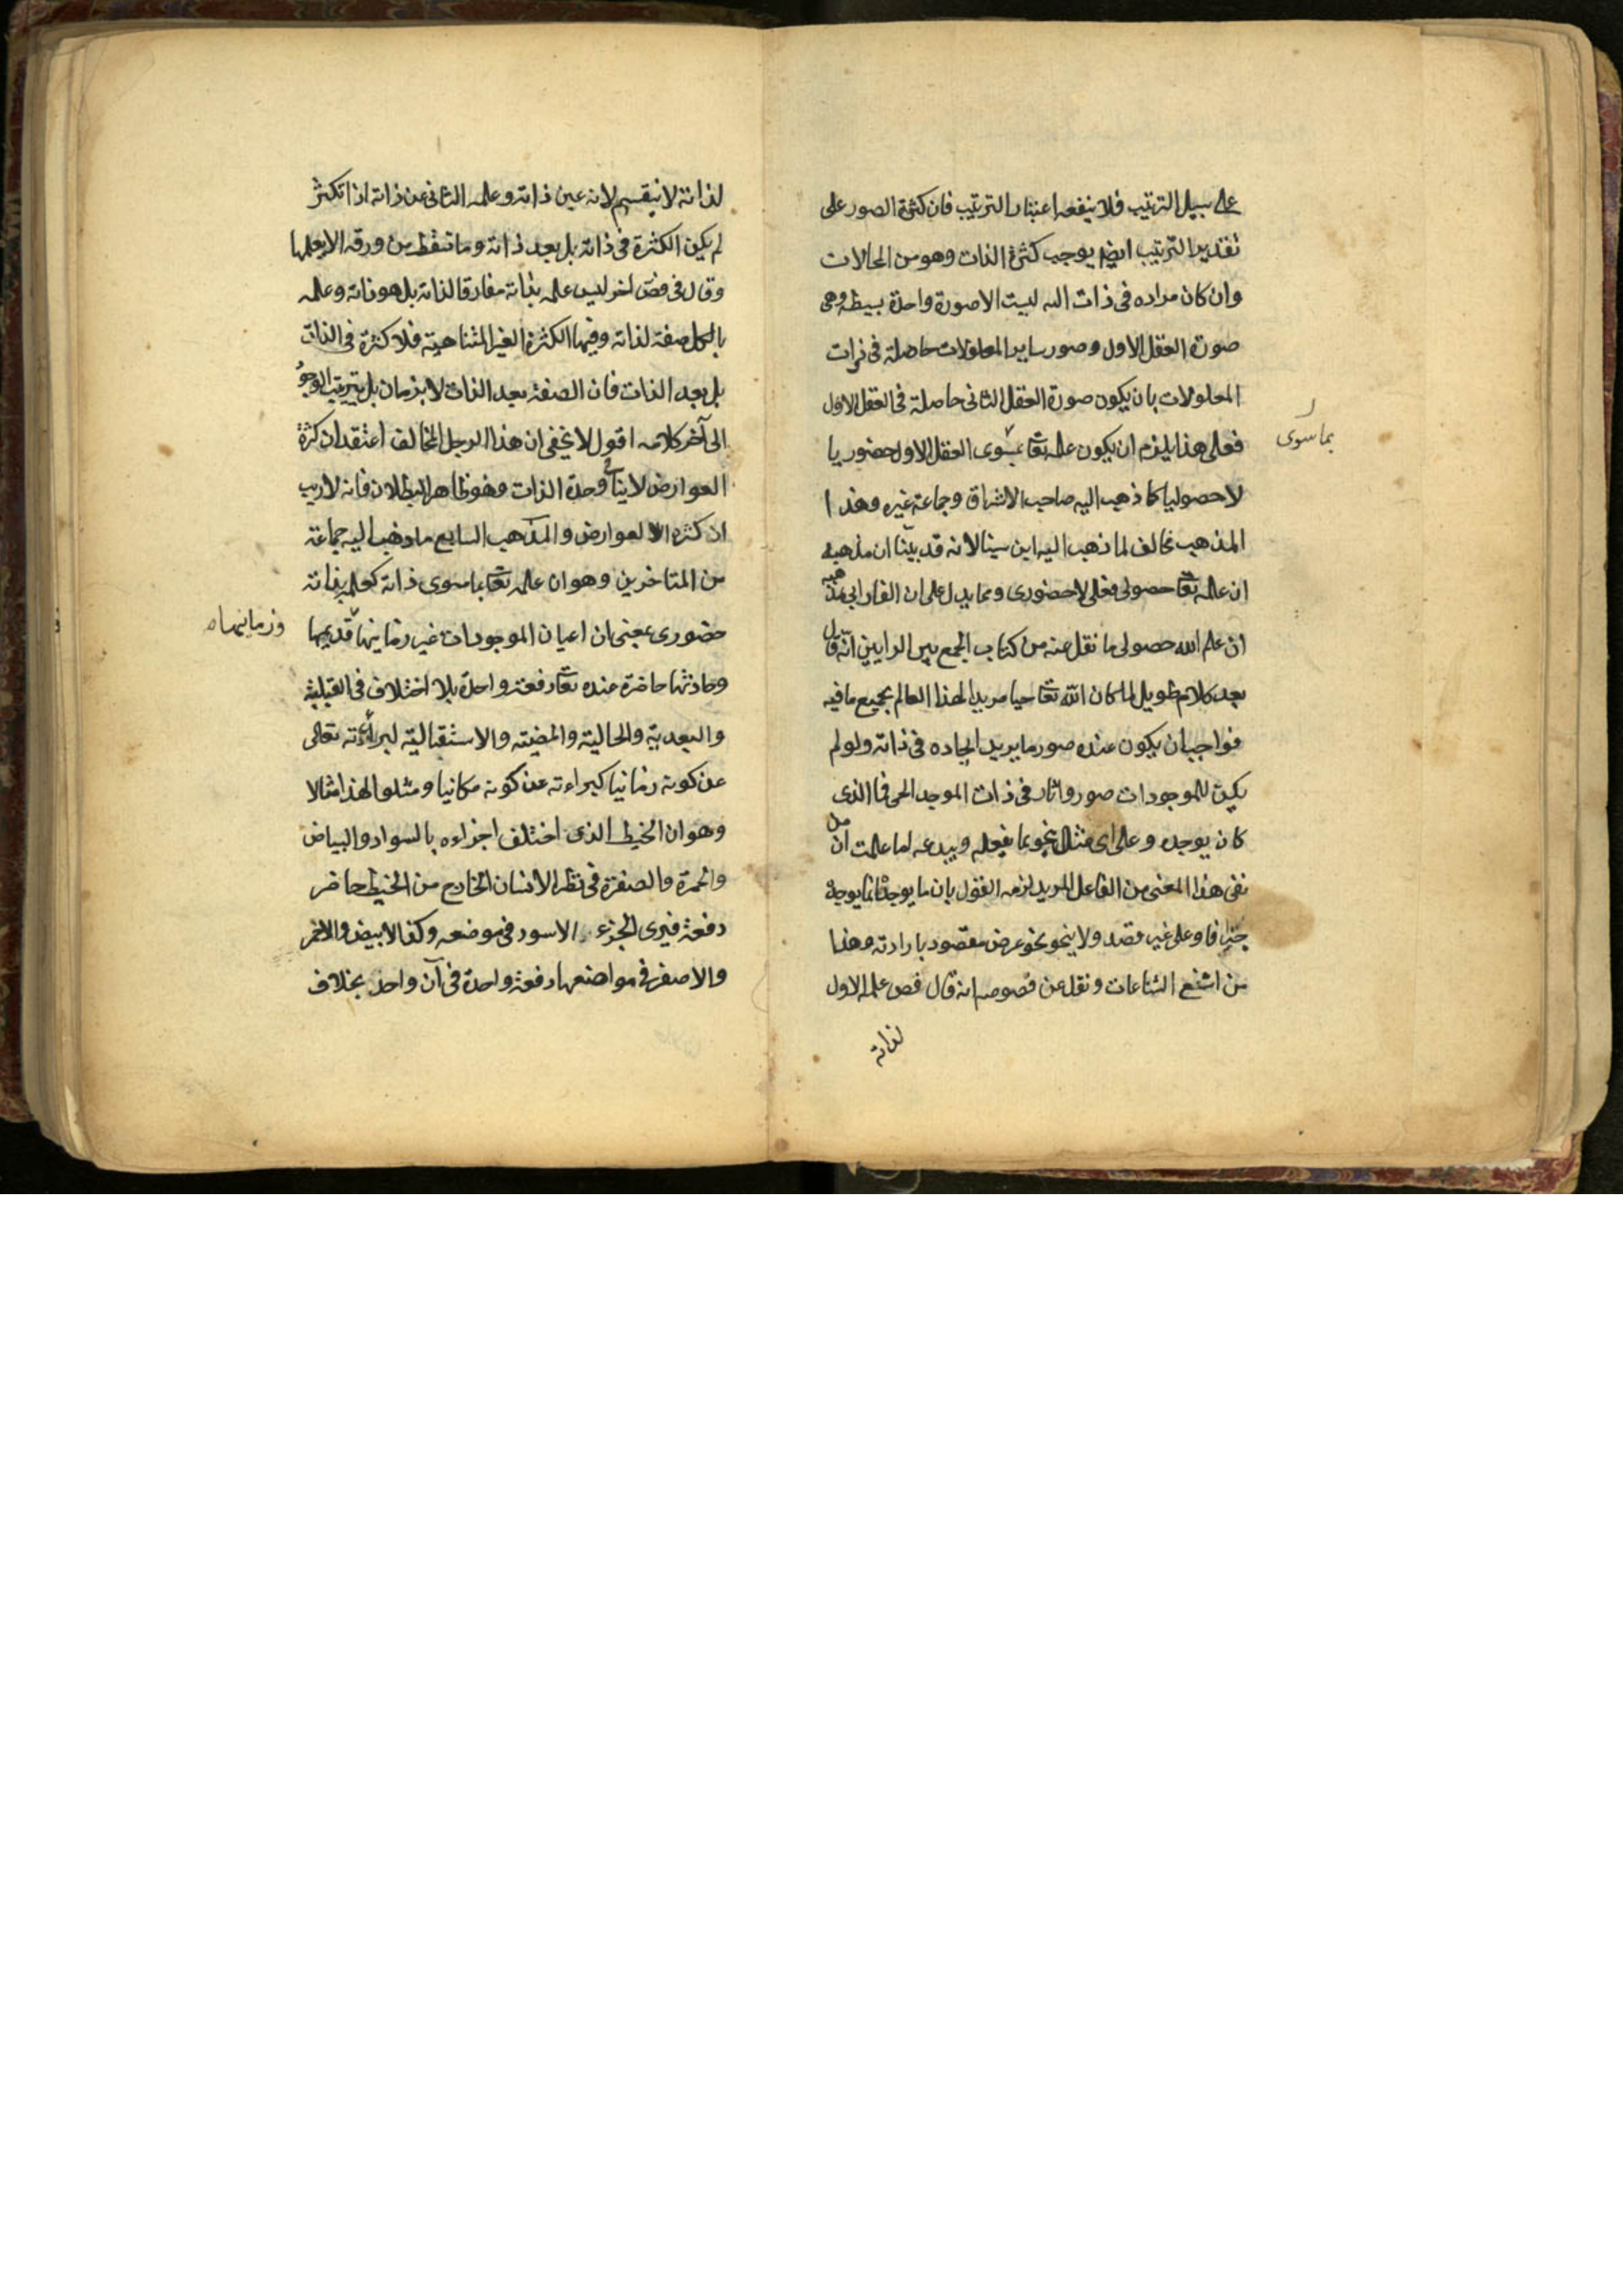 على سبيل الترتيب فلا ينفعه اعتبار الترتيب فان كثرة الصور على
تقدير الترتيب ايضا يوجب كثرة الذات وهو من المحالات
وان كان مراده فى ذات الله ليست الا صورة واحدة بسيطة وهى
صورة العقل الاول وصور ساير المعلولات حاصلة فى ذات
المعلولات بان يكون صورة العقل الثانى حاصلة فى العقل الاول
فعلى هذا يلزم ان يكون علمه تعا بسوى العقل الاول حضوريا
بماسوى
لا حصوليا كما ذهب اليه صاحب الاشراق وجماعة غيره وهذا
المذهب مخالف لما ذهب اليه ابن سينا لانه قد بيّنا ان مذهبه
ان علمه تعا حصولى فعلى لا حضورى ومما يدل على ان الفارابى مذهبه
ان علم الله حصولى ما نقل عنه من كتاب الجمع بين الرايين انه قال
بعد كلام طويل لما كان الله تعا حيا مريدا لهذا العالم بجميع ما فيه
فواجب ان يكون عنده صور ما يريد ايجاده فى ذاته ولو لم
يكن للموجودات صور واثار فى ذات الموجد الحى فما الذى
كان يوجده وعلى اى مثال ينحو بما يفعله ويبدعه اما علمت ان من
نفى هذا المعنى من الفاعل المريد لزمه القول بان ما يوجده انما يوجده
جزافا وعلى غير قصد ولا ينحو نحو عرض مقصود بارادته وهذا
من اشنع الشناعات ونقل عن فصوصه انه قال فص علمه الاول
لذاته
لذاته لا ينقسم لانه عين ذاته وعلمه الثانى عن ذاته اذا تكثر
لم يكن الكثرة فى ذاته بل بعد ذاته وما تسقط من ورقه الا يعلمها
وقال فى فص اخر ليس علمه بذاته مفارقا لذاته بل هو ذاته وعلمه
بالكل صفة لذاته وفيها الكثرة الغير المتناهية فلا كثرة فى الذات
بل بعد الذات فان الصفة بعد الذات لا بزمان بل بترتيب الوجود
الى آخر كلامه اقول لا يخفى ان هذا الرجل المخالف اعتقد ان كثرة
العوارض لا ينافى وحدة الذات وهو ظاهر البطلان فانه لا ريب
ان كثرة العوارض والمذهب السابع ما ذهب اليه جماعة
من المتاخرين وهو ان علمه تعا بما سوى ذاته كعلمه بذاته
حضورى بمعنى ان اعيان الموجودات غير زمانيها قديمها
وزمانيها
وحادثها حاضرة عنده تعا دفعة واحدة بلا اختلاف فى القبلية
والبعدية والحالية والمضيته والاستقبالية لبراءته تعالى
عن كونه زمانيا كبراءته عن كونه مكانيا ومثلوا لهذا مثالا
وهو ان الخيط الذى اختلف اجزاءه بالسواد والبياض
والحمرة والصفرة فى نظر الانسان الخارج من الخيط حاضر
دفعة فيرى الجزء الاسود فى موضعه وكذا الابيض والاحمر
والاصفر فى مواضعها دفعة واحدة فى آن واحد بخلاف